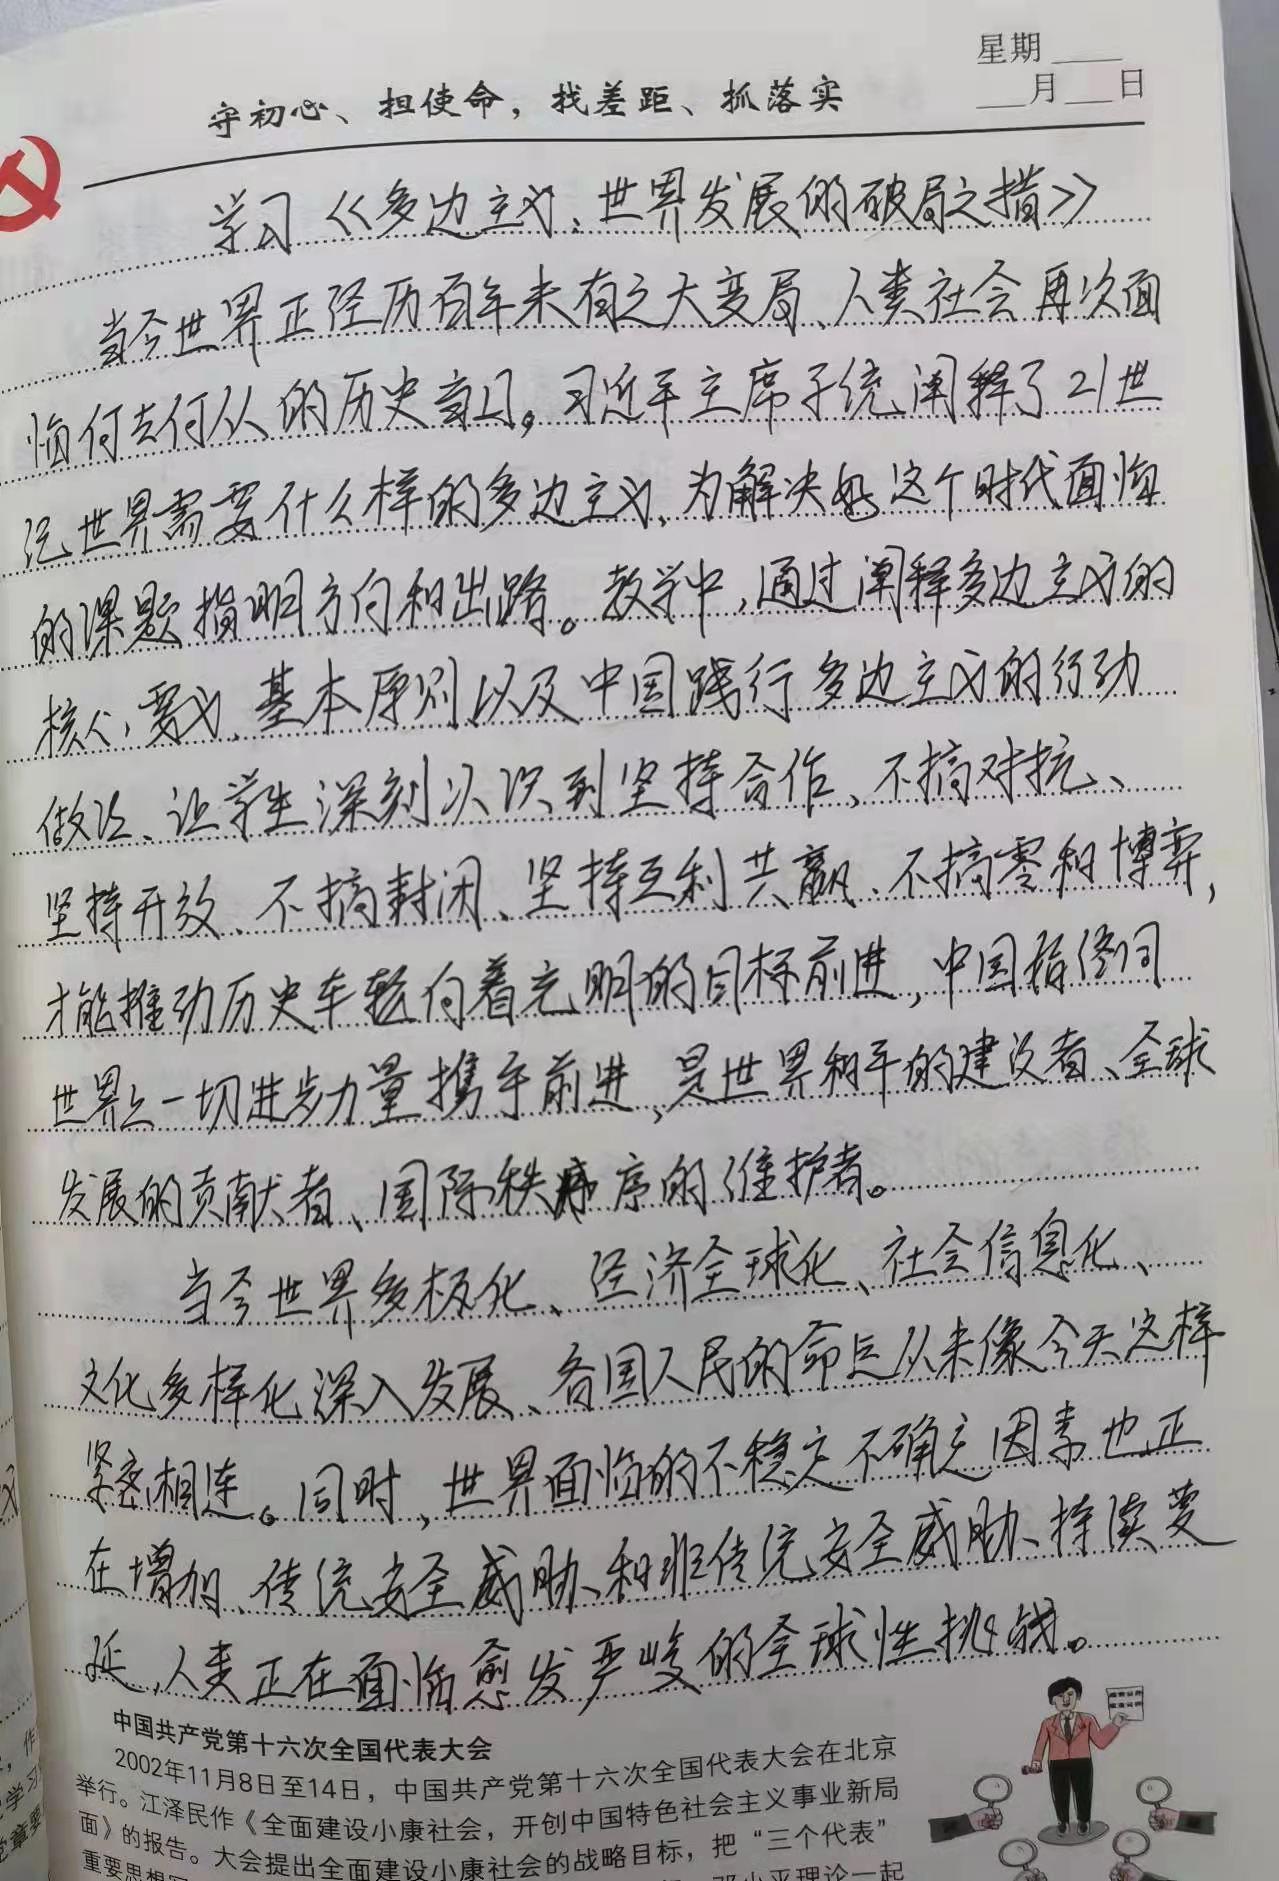 星期____
___月___日
守初心、担使命，找差距、抓落实
学习《多边主义：世界发展的破局之措》
当今世界正经历百年未有之大变局、人类社会再次面
临何去何从的历史当口。习近平主席子统阐释了21世
纪世界需要什么样的多边主义、为解决好这个时代面临
的课题指明方向和出路。教学中，通过阐释多边主义的
核心要义、基本原则以及中国践行多边主义的行动
做法、让学生深刻认识到坚持合作、不搞对抗、
坚持开放、不搞封闭、坚持互利共赢、不搞零和博弈，
才能推动历史车轮向着光明的目标前进，中国始终同
世界上一切进步力量携手前进，是世界和平的建设者、全球
发展的贡献者、国际秩序的维护者。
当今世界多极化、经济全球化、社会信息化、
文化多样化深入发展、各国人民的命运从未像今天这样
紧密相连。同时，世界面临的不稳定不确定因素也正
在增加、传统安全威胁、和非传统安全威胁、持续蔓
延，人类正在面临愈发严峻的全球性挑战。
中国共产党第十六次全国代表大会
2002年11月8日至14日，中国共产党第十六次全国代表大会在北京
举行。江泽民作《全面建设小康社会，开创中国特色社会主义事业新局
面》的报告。大会提出全面建设小康社会的战略目标，把“三个代表”
重要思想
邓小平理论一起